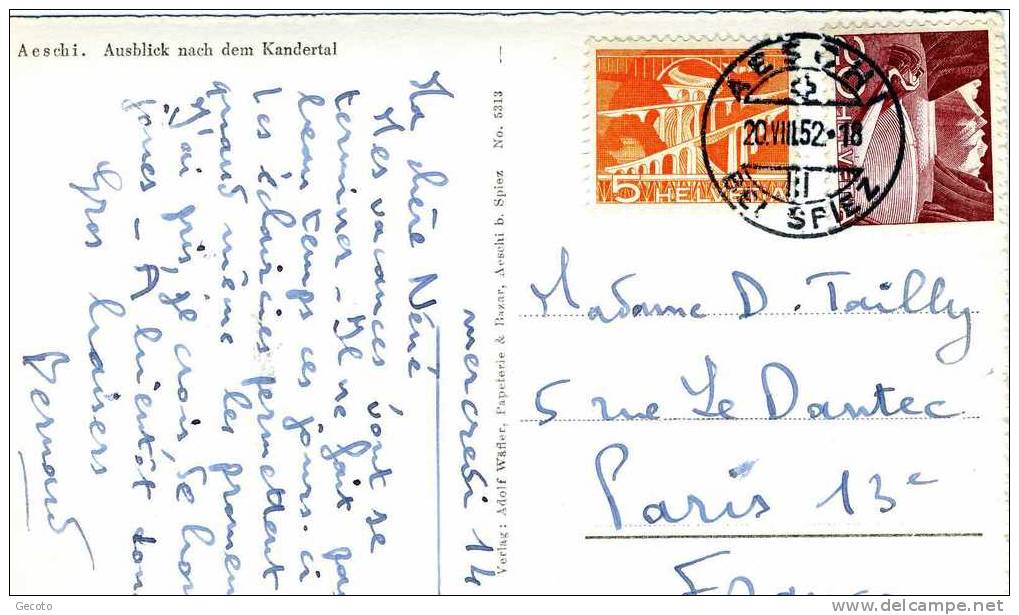 Aeschi. Ausblick nach dem Kandertal
mercredi 14
Ma chère Néné
Mes vacances vont se
terminer - Il ne fait pas
beau temps ces jours-ci
Les éclaircies permettent
quand même les promen
J'ai pris, je crois, de bon
- A bientôt donc
Gros baisers
Bernard
Verlag: Adolf Wäfler, Papeterie & Bazar, Aeschi b. Spiez No. 5313
5 HELVETIA
AESCHI
20.VIII.52-18
BEI SPIEZ
Madame D. Tailly
5 rue Le Dantec
Paris 13e
France
Gecoto
delcampe.net